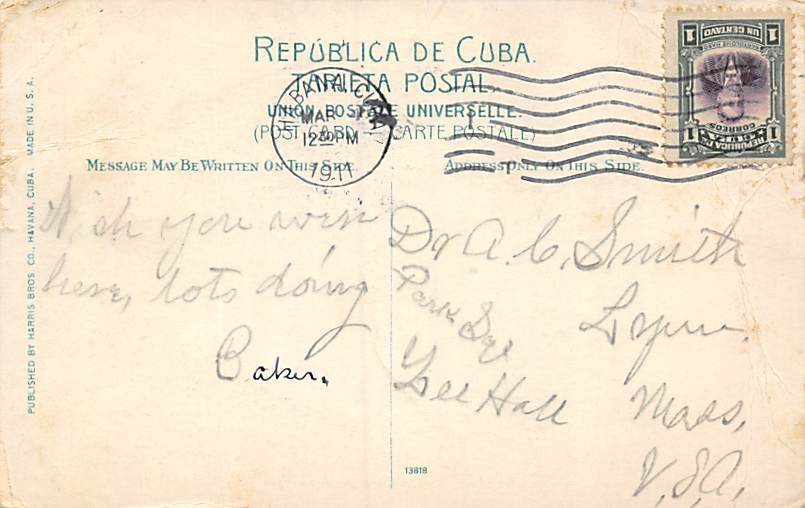 REPÚBLICA DE CUBA.
TARJETA POSTAL.
UNION POSTALE UNIVERSELLE.
(POST CARD CARTE POSTALE)
MESSAGE MAY BE WRITTEN ON THIS SIDE
ADDRESS ONLY ON THIS SIDE.
HABANA, CUBA
MAR
12 30 PM
1911
1 UN CENTAVO 1
BARTOLOME MASO
CORREOS
1 REPUBLICA DE CUBA 1
Wish you were
here, lots doing
Baker.
Dr A. C. Smith
Park Sqe
Lynn.
Lee Hall
Mass,
U.S.A,
PUBLISHED BY HARRIS BROS. CO., HAVANA, CUBA. MADE IN U.S.A.
13818